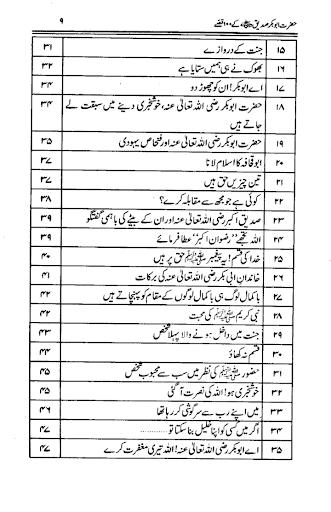 حضرت ابوبکر صدیق ؓ کے ۱۰۰ قصے ۹
۱۵ جنت کے دروازے ۳۱
۱۶ بھوک نے ہی ہمیں ستایا ہے ۳۲
۱۷ اے ابوبکر! ان کو چھوڑ دو ۳۴
۱۸ حضرت ابوبکر رضی اللہ تعالیٰ عنہ، خوشخبری دینے میں سبقت لے ۳۴
جاتے ہیں
۱۹ حضرت ابوبکر رضی اللہ تعالیٰ عنہ اور فنحاص یہودی ۳۵
۲۰ ابوقحافہ کا اسلام لانا ۳۷
۲۱ تین چیزیں حق ہیں ۳۷
۲۲ کوئی ہے جو مجھ سے مقابلہ کرے؟ ۳۸
۲۳ صدیق اکبر رضی اللہ تعالیٰ عنہ اور ان کے بیٹے کی باہمی گفتگو ۳۹
۲۴ اللہ تجھے ”رضوان اکبر“ عطا فرمائے ۳۹
۲۵ خدا کی قسم! یہ پیغمبر ﷺ حق پر ہیں ۴۰
۲۶ خاندان ابی بکر رضی اللہ تعالیٰ عنہ کی برکات ۴۱
۲۷ باکمال لوگ ہی باکمال لوگوں کے مقام کو پہچانتے ہیں ۴۲
۲۸ نبی کریم ﷺ کی محبت ۴۲
۲۹ جنت میں داخل ہونے والا پہلا شخص ۴۳
۳۰ قسم نہ کھاؤ ۴۴
۳۱ حضور ﷺ کی نظر میں سب سے محبوب شخص ۴۵
۳۲ خوشخبری ہو! اللہ کی نصرت آگئی ۴۵
۳۳ میں اپنے رب سے سرگوشی کر رہا تھا ۴۶
۳۴ اگر میں کسی کو اپنا خلیل بنا سکتا تو............ ۴۷
۳۵ اے ابوبکر رضی اللہ تعالیٰ عنہ! اللہ تیری مغفرت کرے ۴۷